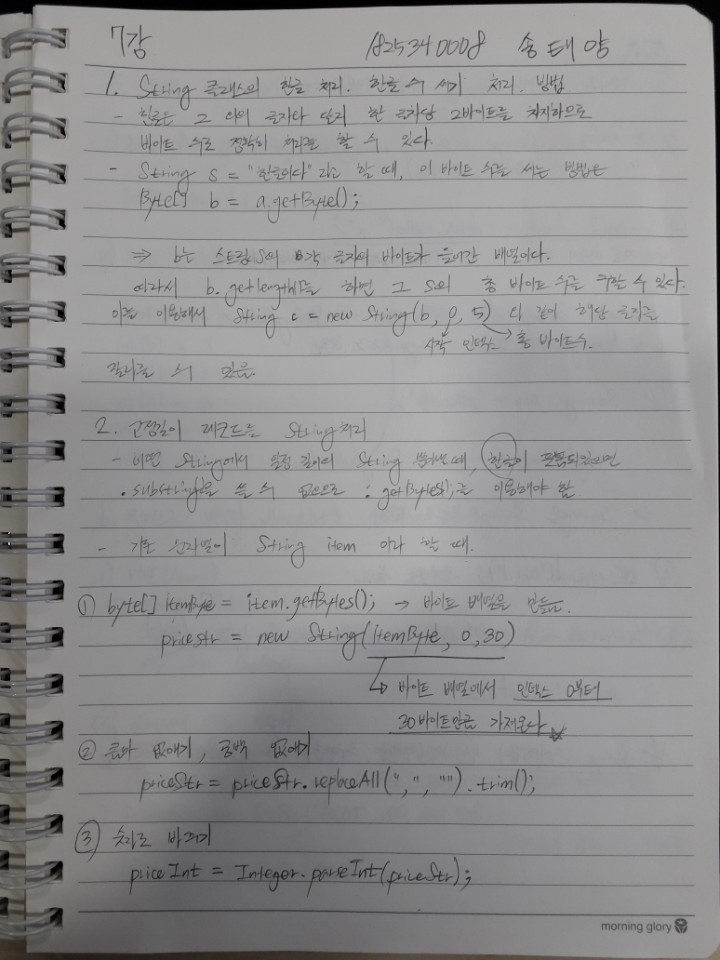 7강 1825340008 송태양
1. String 클래스의 한글 처리. 한글 수 세기 처리. 방법
- 한글은 그 다의 글자와 달리 한 글자당 2바이트를 차지하므로
바이트 수로 정확히 처리를 할 수 있다.
- String s = "한글이다" 라고 할 때, 이 바이트 수를 세는 방법은
Byte[] b = a.getByte();
⇒ b는 스트링 s의 각 글자의 바이트가 들어간 배열이다.
따라서 b.getlength()를 하면 그 s의 총 바이트 수를 구할 수 있다.
이를 이용해서 String c = new String(b, 0, 5) 와 같이 해당 글자를
시작 인덱스 → 총 바이트수.
잘라올 수 있음
2. 고정길이 레코드를 String처리
- 어떤 String에서 일정 길이의 String 뽑아낼 때, 한글이 포함되있으면
.substring()을 쓸 수 없으므로 : getBytes();를 이용해야 함.
- 기존 문자열이 String item 이라 할 때.
① byte[] itemByte = item.getBytes(); → 바이트 배열을 만듦.
pricestr = new String(itemByte, 0, 30)
↳ 바이트 배열에서 인덱스 0부터
30바이트만큼 가져온다
② 콤마 없애기, 공백 없애기
priceStr = priceStr.replaceAll(",", "").trim();
③ 숫자로 바꾸기
priceInt = Integer.parseInt(priceStr);
morning glory